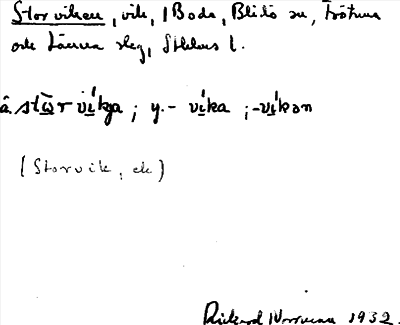 Storviken, vik, i Boda, Blitö sn, Frötuna
och Länna slg, Sthlms l.
å. stōr víkja; y. - víka; -víkən
(Storvik, ek)
Rickard 1932.